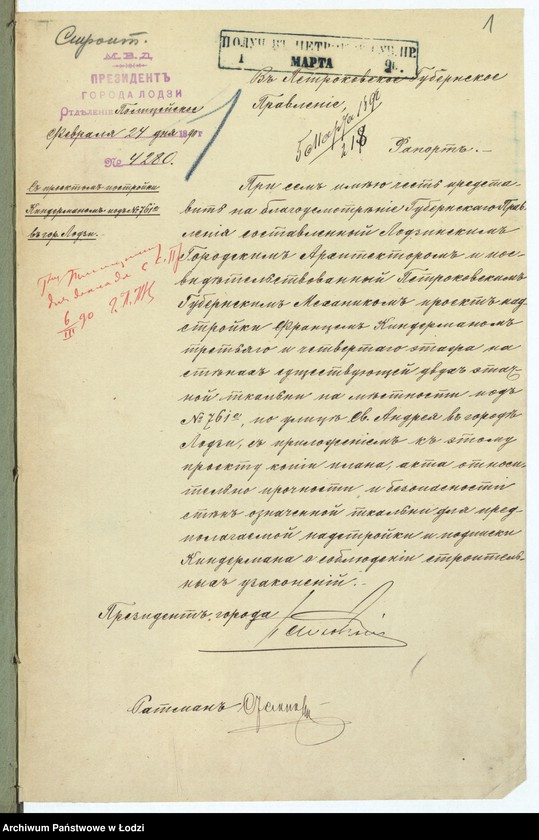 1
Строит.
М. В. Д.
ПРЕЗИДЕНТЪ
ГОРОДА ЛОДЗИ
Отдѣленіе Полицейское
Февраля 24 дня 1890 г.
№ 4280.
МАРТА
Въ Петроковское Губернское
Правленіе,
5 Марта 1890
218
Рапортъ.
Съ проектомъ постройки
Киндерманомъ подъ № 761а
въ гор. Лодзи.
6/III 90
При семъ имѣю честь предста-
вить на благоусмотрѣніе Губернскаго Прав-
ленія составленный Лодзинскимъ
Городскимъ Архитекторомъ и пос-
видѣтельствованный Петроковскимъ
Губернскимъ Механикомъ проектъ над-
стройки Францемъ Киндерманомъ
третьяго и четвертаго этажа на
стѣнахъ существующей двухэтаж-
ной ткальни на мѣстности подъ
№ 761а, по улицѣ Св. Андрея въ городѣ
Лодзи, съ приложеніемъ къ этому
проекту копіи плана, акта относи-
тельно прочности и безопасности
стѣнъ означенной ткальни для пред-
полагаемой надстройки и подписки
Киндермана о соблюденіи строитель-
ныхъ узаконеній.
Президентъ города
Ратманъ
Archiwum Państwowe w Łodzi